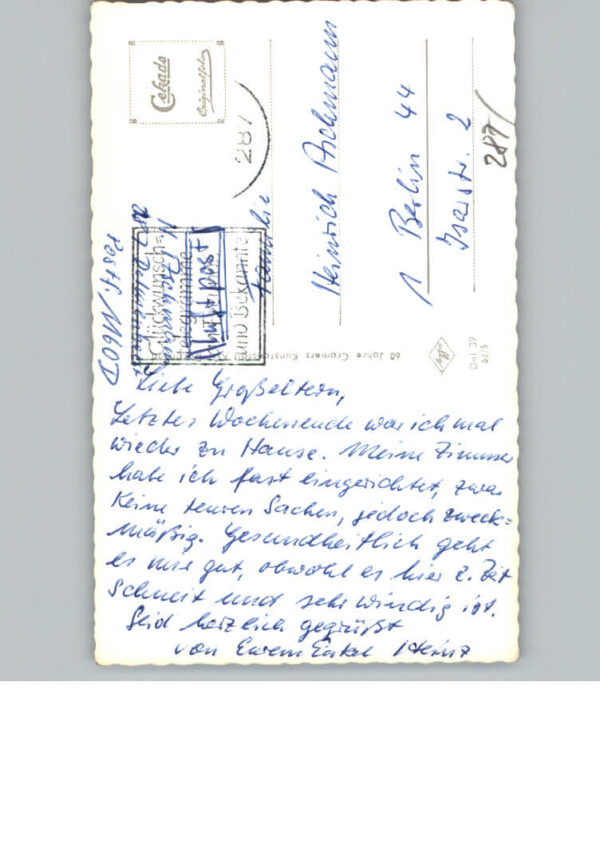 Cekade
Originalfoto
287
Glückwunsch=
telegramme
und Bekannte
Luftpost
Familie
Heinrich Aschmann
1 Berlin 44
Isarstr. 2
287/
60 Jahre Cramers Kunstanstalt
Agfa
Del 39
Liebe Großeltern,
Letztes Wochenende war ich mal
wieder zu Hause. Meine Zimmer
habe ich fast eingerichtet, zwar
keine teuren Sachen, jedoch zweck=
mäßig. Gesundheitlich geht
es mir gut, obwohl es hier z. Zt
Schneit und sehr windig ist.
Seid herzlich gegrüßt
von Eurem Enkel Heinz